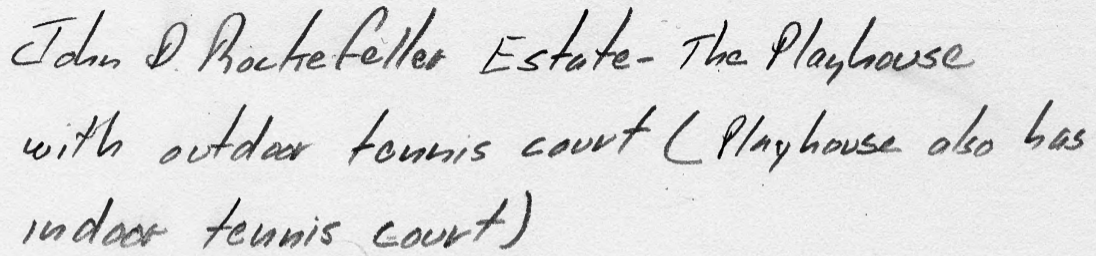 John D. Rockefeller Estate - The Playhouse
with outdoor tennis court (Playhouse also has
indoor tennis court)